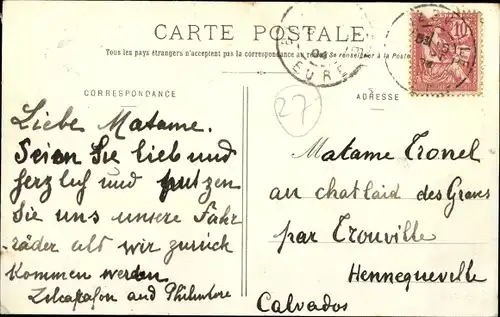 CARTE POSTALE
Tous les pays étrangers n'acceptent pas la correspondance au recto. Se renseigner à la Poste
EURE
04
10
27
CORRESPONDANCE
Liebe Matame.
Seien Sie lieb und
herzlich und putzen
Sie uns unsere Fahr
räder als wir zurück
kommen werden
and
ADRESSE
Matame Tronel
au chatlaid des Graves
par Trouville
Hennequeville
Calvados